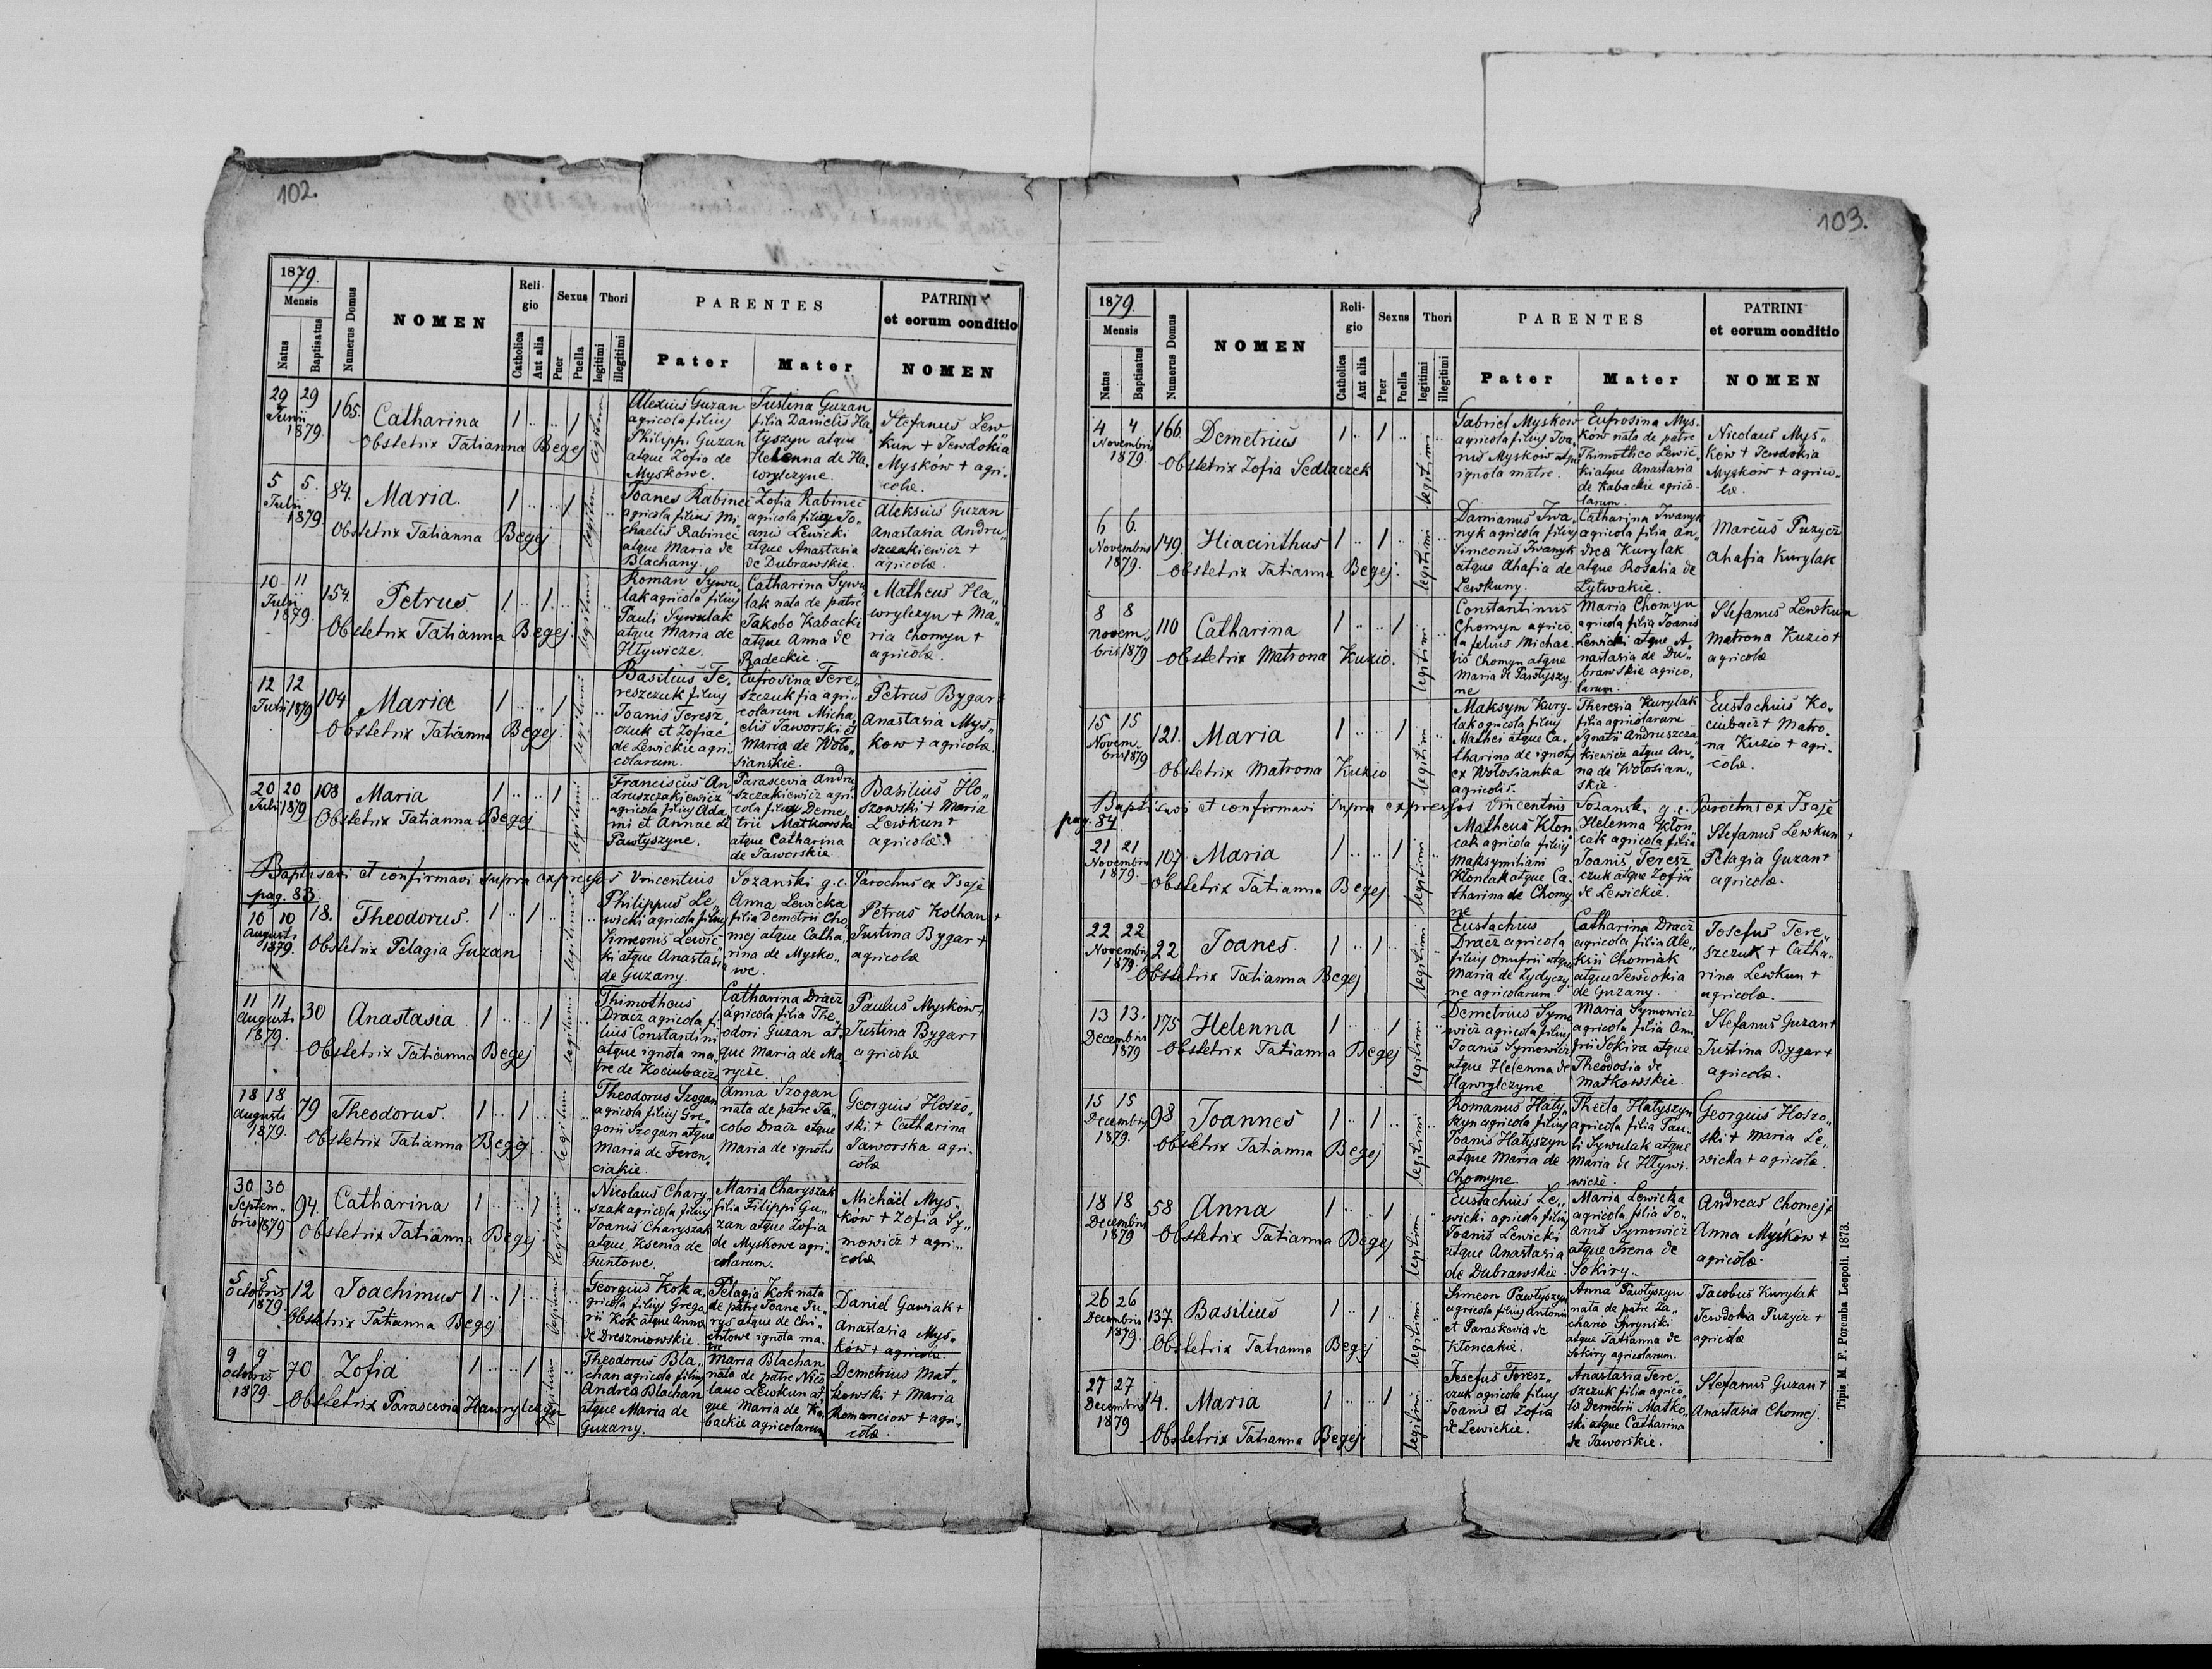 102.
1879.
Mensis
Natus
Baptisatus
Numerus Domus
NOMEN
Religio
Catholica
Aut alia
Sexus
Puer
Puella
Thori
legitimi
illegitimi
PARENTES
Pater
Mater
PATRINI
et eorum conditio
NOMEN
29 29 165. Catharina 1 .. .. 1
Junii
1879.
Obstetrix Tatianna Begej
legitimi
Alexius Guzan
agricola filius
Philippi Guzan
atque Zofia de
Myskowe.
Justina Guzan
filia Danielis Ha„
tyszyn atque
Helenna de Ha„
wrylczyne.
Stefanus Lew„
kun + Jewdokia
Mysków + agri„
colæ.
5 5. 84. Maria. 1 .. .. 1
Julii
1879.
Obstetrix Tatianna Begej
legitimi
Joanes Rabineć
agricola filius Mi„
chaelis Rabineć
atque Maria de
Blachany.
Zofia Rabineć
agricola filia Jo„
anis Lewicki
atque Anastasia
de Dubrawskie.
Aleksius Guzan
Anastasia Andru„
szczakiewicz +
agricolæ.
10 11 154. Petrus 1 .. 1 ..
Julii
1879.
Obstetrix Tatianna Begej.
legitimi
Roman Sywu„
lak agricola filius
Pauli Sywulak
atque Maria de
Hływicze.
Catharina Sywu„
lak nata de patre
Jakobo Kabacki
atque Anna de
Radeckie.
Matheus Ha„
wrylczyn + Ma„
ria Chomyn +
agricolæ.
12 12 104 Maria 1 .. .. 1
Julii 1879
Obstetrix Tatianna Begej.
legitimi
Basilius Te„
reszczuk filius
Joanis Teresz„
czuk et Zofiae
de Lewickie agri„
colarum.
Eufrosina Tere„
szczuk fia agri„
colarum Micha„
elis Jaworski et
Maria de Woło„
sianskie.
Petrus Bygar +
Anastasia Mys„
kow + agricolæ.
20 20 108 Maria 1 .. .. 1
Julii 1879
Obstetrix Tatianna Begej
legitimi
Franciscus An„
druszczakiewicz
agricola filius Ada„
mi et Annae de
Pawłyszyne.
Parascevia Andru„
szczakiewicz agri„
cola filia Deme„
trii Matkowski
atque Catharina
de Jaworskie
Basilius Ho„
szowski + Maria
Lewkun +
agricolæ.
Baptisavi et confirmavi supra expressos Vincentius Sozanski g.c. Parochus ex Isaje
pag. 83.
10 10 18. Theodorus. 1 .. 1 ..
Augusti
1879.
Obstetrix Pelagia Guzan
legitimi
Philippus Le„
wicki agricola filius
Simeonis Lewic„
ki atque Anastasia
de Guzany.
Anna Lewicka
filia Demetrii Cho„
mej atque Catha„
rina de Mysko„
we.
Petrus Kolhan +
Justina Bygar +
agricolæ
11 11 30 Anastasia 1 .. .. 1
Augusti
1879.
Obstetrix Tatianna Begej
legitimi
Thimotheus
Dracz agricola fi„
lius Constantini
atque ignota ma„
tre de Kociubacze
Catharina Dracz
agricola filia The„
odori Guzan at„
que Maria de Ma„
rycze.
Paulus Mysków +
Justina Bygar +
agricolæ
18 18 79 Theodorus. 1 .. 1 ..
Augusti
1879.
Obstetrix Tatianna Begej.
legitimi
Theodorus Szogan
agricola filius Gre„
gorii Szogan atque
Maria de Feren„
ciakie.
Anna Szogan
nata de patre Ja„
cobo Dracz atque
Maria de ignotis
Georgius Hoszo„
ski + Catharina
Jaworska agri„
colæ
30 30 94. Catharina 1 .. .. 1
Septem„
bris 1879
Obstetrix Tatianna Begej
legitimi
Nicolaus Chary„
szak agricola filius
Joanis Charyszak
atque Ksenia de
Funtowe.
Maria Charyszak
filia Filippi Gu„
zan atque Zofia
de Myskowe agri„
colarum.
Michaël Mys„
ków + Zofia Sy„
mowicz + agri„
colæ
5 5 12 Joachimus 1 .. 1 ..
Octobris
1879.
Obstetrix Tatianna Begej
legitimi
Georgius Kok a„
gricola filius Grego„
rii Kok atque Anna
de Dreszniowskie.
Pelagia Kok nata
de patre Joane Ju„
rys atque de Chi„
chtowe ignota ma„
tre
Daniel Gawiak +
Anastasia Mys„
ków + agricolæ.
9 9 70 Zofia 1 .. .. 1
Octobris
1879.
Obstetrix Parascevia Hawrylczyn
legitimi
Theodorus Bla„
chan agricola filius
Andrea Blachan
atque Maria de
Guzany.
Maria Blachan
nata de patre Nico„
lauo Lewkun at„
que Maria de Ka„
backie agricolarum
Demetrius Mat„
kowski + Maria
Romanciow + agri„
colæ.
103.
1879.
Mensis
Natus
Baptisatus
Numerus Domus
NOMEN
Religio
Catholica
Aut alia
Sexus
Puer
Puella
Thori
legitimi
illegitimi
PARENTES
Pater
Mater
PATRINI
et eorum conditio
NOMEN
4 4 166. Demetrius 1 .. 1 ..
Novembris
1879.
Obstetrix Zofia Sedlaczek
legitimi
Gabriel Mysków
agricola filius Joa„
nis Myskow atque
ignota matre.
Eufrosina Mys„
ków nata de patre
Thimotheo Lewic„
ki atque Anastasia
de Kabackie agrico„
larum
Nicolaus Mys„
ków + Jewdokia
Mysków + agrico„
læ.
6 6. 149. Hiacinthus 1 .. 1 ..
Novembris
1879.
Obstetrix Tatianna Begej.
legitimi
Damianus Iwa„
nyk agricola filius
Simeonis Iwanyk
atque Ahafia de
Lewkuny.
Catharina Iwanyk
agricola filia An„
drea Kurylak
atque Rosalia de
Lytwakie.
Marcus Puzycz
Ahafia Kurylak
8 8 110 Catharina 1 .. .. 1
Novem„
bris 1879
Obstetrix Matrona Kuzio.
legitimi
Constantinus
Chomyn agrico„
la felius Michae„
lis Chomyn atque
Maria de Pawłyszy„
ne
Maria Chomyn
agricola filia Joanis
Lewicki atque A„
nastasia de Du„
brawskie agrico„
larum.
Stefanus Lewkun
Matrona Kuzio +
agricolæ
15 15 121. Maria 1 .. .. 1
Novem„
bris 1879
Obstetrix Matrona Kuzio
legitimi
Maksym Kury„
lak agricola filius
Mathei atque Ca„
tharina de ignotis
ex Wołosianka
agricolis.
Theresia Kurylak
filia agricolarum
Ignatii Andruszcza„
kiewicz atque An„
na de Wołosian„
skie.
Eustachius Ko„
ciubacz + Matro„
na Kuzio + agri„
colæ.
Baptisavi et confirmavi supra expressos Vincentius Sozanski g.c. Parochus ex Isaje
pag. 84.
21 21 107 Maria 1 .. .. 1
Novembris
1879.
Obstetrix Tatianna Begej
legitimi
Matheus Kłon„
cak agricola filius
Maksymiliani
Kłoncak atque Ca„
tharina de Chomy„
ne
Helenna Kłon„
cak agricola filia
Joanis Teresz„
czuk atque Zofia
de Lewickie.
Stefanus Lewkun +
Pelagia Guzan +
agricolæ.
22 22 22 Joanes. 1 .. 1 ..
Novembris
1879.
Obstetrix Tatianna Begej
legitimi
Eustachius
Dracz agricola
filius Onufrii atque
Maria de Zydyczy„
ne agricolarum.
Catharina Dracz
agricola filia Ale„
ksii Chomiak
atque Jewdokia
de Guzany.
Josefus Tere„
szczuk + Catha„
rina Lewkun +
agricolæ.
13 13. 175 Helenna 1 .. .. 1
Decembris
1879
Obstetrix Tatianna Begej
legitimi
Demetrius Symo„
wicz agricola filius
Joanis Symowicz
atque Helenna de
Hawrylczyne
Maria Symowicz
agricola filia An„
drii Sokira atque
Theodosia de
Matkowskie.
Stefanus Guzan +
Justina Bygar +
agricolæ.
15 15 98 Joannes 1 .. 1 ..
Decembris
1879.
Obstetrix Tatianna Begej
legitimi
Romanus Haty„
szyn agricola filius
Joanis Hatyszyn
atque Maria de
Chomyne.
Thecla Hatyszyn
agricola filia Pau„
li Sywulak atque
Maria de Hływi„
wicze.
Georgius Hoszo„
ski + Maria Le„
wicka + agricolæ.
18 18 58 Anna 1 .. .. 1
Decembris
1879
Obstetrix Tatianna Begej
legitimi
Eustachius Le„
wicki agricola filius
Joanis Lewicki
atque Anastasia
de Dubrawskie.
Maria Lewicka
agricola filia Jo„
anis Symowicz
atque Irena de
Sokiry.
Andreas Chomej +
Anna Mysków +
agricolæ.
26 26 137. Basilius 1 .. 1 ..
Decembris
1879.
Obstetrix Tatianna Begej
legitimi
Simeon Pawłyszyn
agricola filius Antonii
et Paraskevia de
Kłoncakie.
Anna Pawłyszyn
nata de patre Za„
chario Spryński
atque Tatianna de
Sokiry agricolarum.
Jacobus Kurylak
Jewdokia Puzycz +
agricolæ
27 27 14. Maria 1 .. .. 1
Decembris
1879
Obstetrix Tatianna Begej
legitimi
Josefus Teresz„
czuk agricola filius
Joanis et Zofia
de Lewickie.
Anastasia Tere„
szczuk filia agrico„
lo Demetrii Matko„
ski atque Catharina
de Jaworskie.
Stefanus Guzan +
Anastasia Chomej.
Tipis M. F. Poremba Leopoli. 1873.